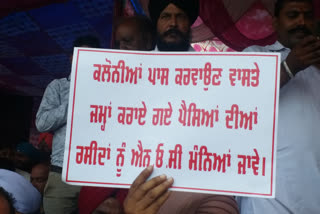 ਕਲੋਨੀਆਂ ਪਾਸ ਕਰਵਾਉਣ ਵਾਸਤੇ
ਜਮ੍ਹਾਂ ਕਰਾਏ ਗਏ ਪੈਸਿਆਂ ਦੀਆਂ
ਰਸੀਦਾਂ ਨੂੰ ਐਨ.ਓ.ਸੀ ਮੰਨਿਆਂ ਜਾਵੇ।